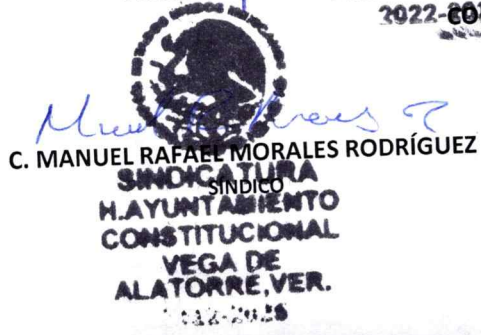 2022-
C. MANUEL RAFAEL MORALES RODRÍGUEZ
SÍNDICO
SINDICATURA
H.AYUNTAMIENTO
CONSTITUCIONAL
VEGA DE
ALATORRE,VER.